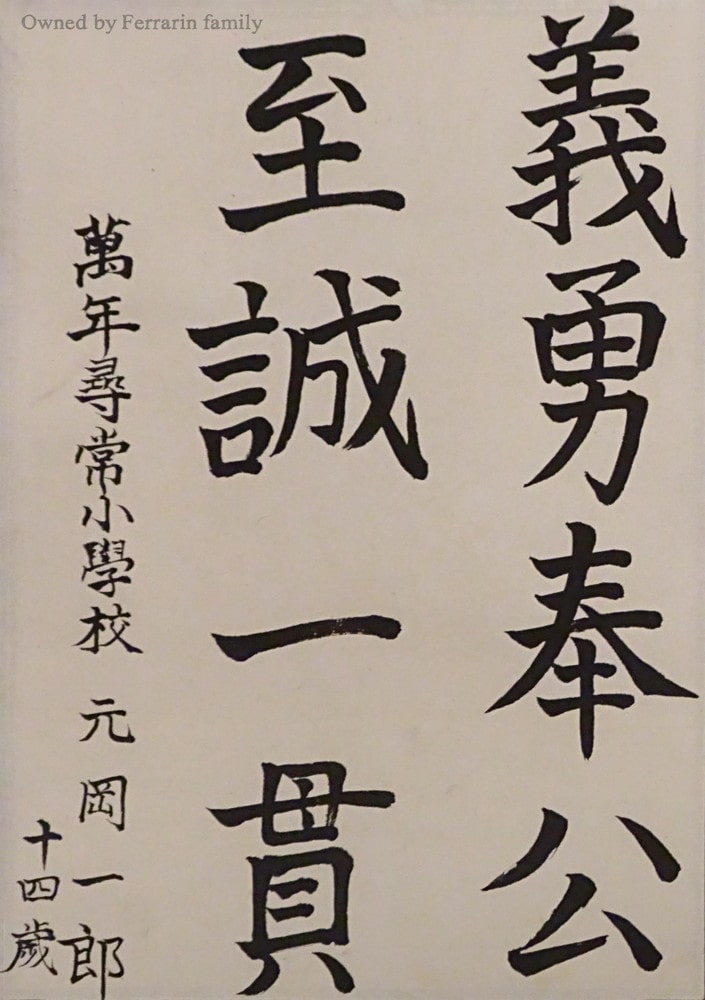 Owned by Ferrarin family
義勇奉公
至誠一貫
萬年尋常小學校 元岡一郎
十四歲